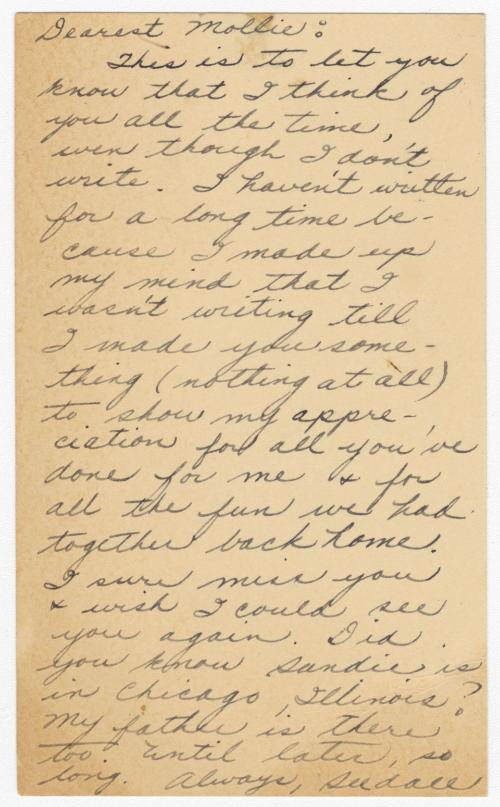 Dearest Mollie:
This is to let you
know that I think of
you all the time,
even though I don't
write. I haven't written
for a long time be-
cause I made up
my mind that I
wasn't writing till
I made you some-
thing (nothing at all)
to show my appre-
ciation for all you've
done for me & for
all the fun we had
together back home.
I sure miss you
& wish I could see
you again. Did
you know Sandie is
in Chicago, Illinois?
My father is there
too. Until later, so
long. Always,